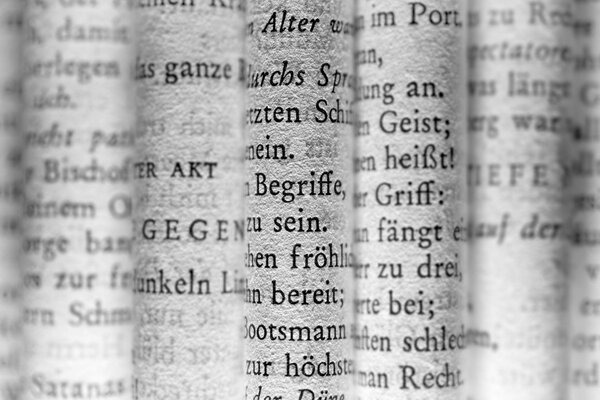 damit
erlegen
sich.
Bischof
einem
zur
Satanas
as ganze
ER AKT
GEGEN
unkeln Li
Alter w
urchs Spr
tzten Schi
nein.
Begriffe,
zu sein.
hen fröhli
n bereit;
Bootsmann
zur höchste
der Düne
im Port.
an,
ung an.
n Geist;
en heißt!
r Griff:
n fängt e
r zu drei,
rte bei;
ften schlec
man Recht
zu
ectatore
as längs
rg war
TIEFE
auf der